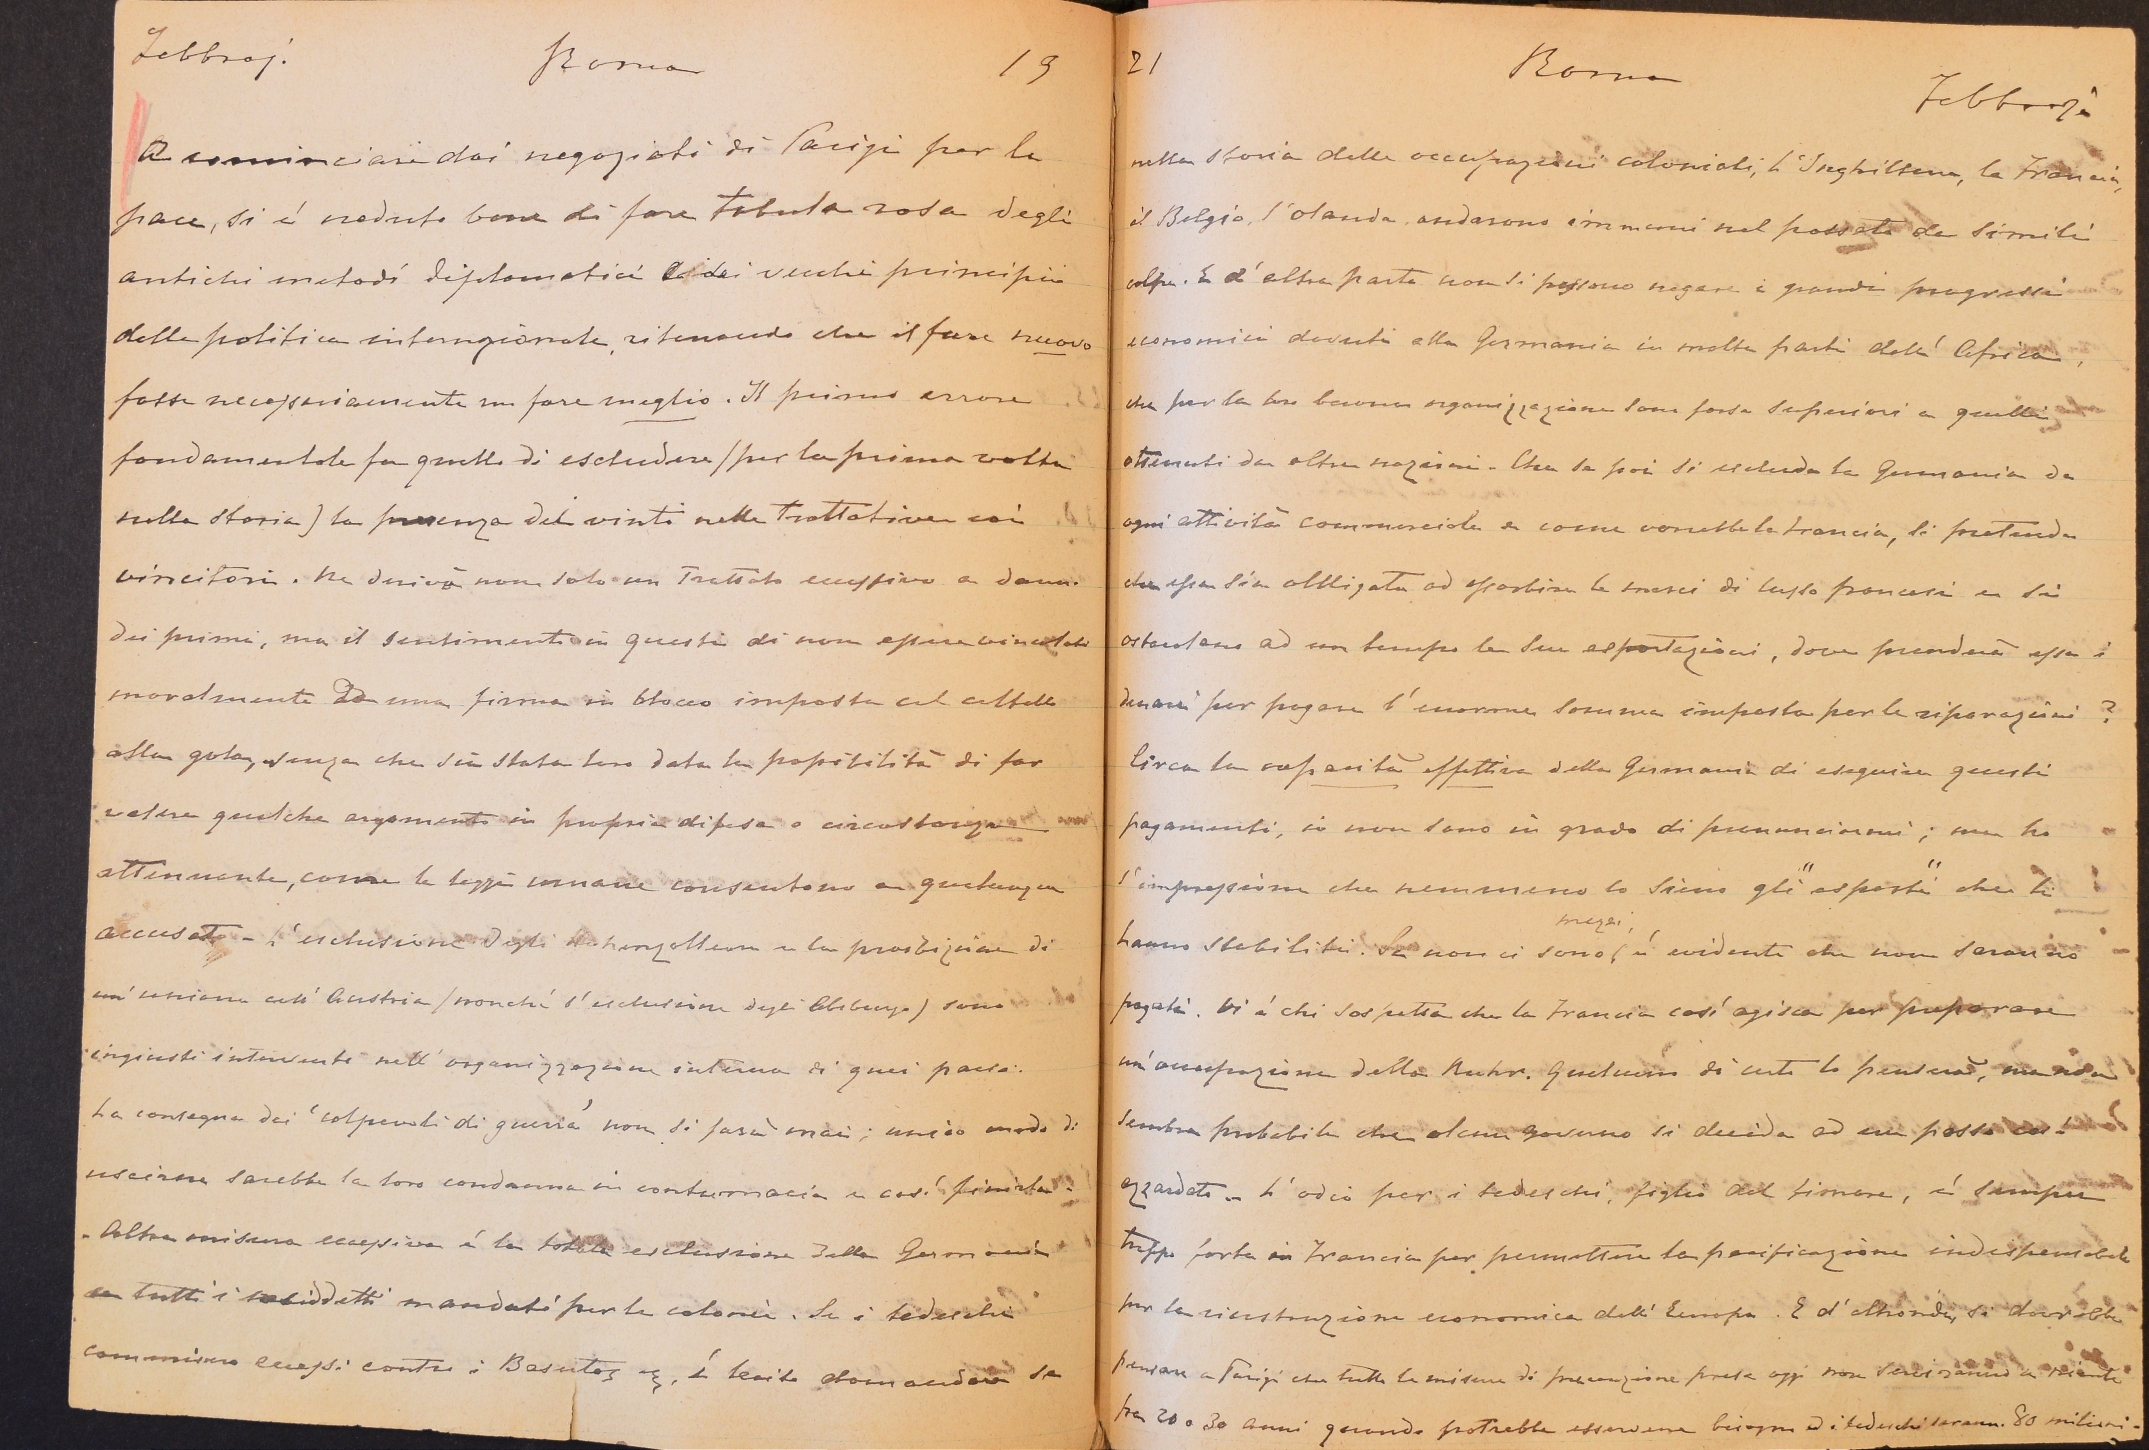 Febbraj. Roma 19
A cominciare dai negoziati di Parigi per la
pace, si é creduto bene di fare tabula rosa degli
antichi metodi diplomatici e dei vecchi principii
della politica internazionale, ritenendo che il fare nuovo
fosse necessariamente un fare meglio. Il primo errore
fondamentale fu quello di escludere (per la prima volta
nella storia) la presenza dei vinti nelle trattative coi
vincitori. Ne derivò non solo un Trattato eccessivo a danno
dei primi, ma il sentimento in questi di non essere vincolati
moralmente da una firma in blocco imposta col coltello
alla gola, senza che sia stata loro data la possibilità di far
valere qualche argomento in propria difesa o circostanza
attenuante, come le leggi umane consentono a qualunque
accusato - L'esclusione degli Hohenzollern e la proibizione di
un'unione coll'Austria (nonché l'esclusione degli Absburgo) sono
ingiusti interventi nell'organizzazione interna di quei paesi.
La consegna dei "colpevoli di guerra" non si farà mai; unico modo di
uscirne sarebbe la loro condanna in contumacia e così finirla.
- Altra misura eccessiva é la totale esclusione della Germania
a tutti i cosiddetti mandati per le colonie. Se i tedeschi
commisero eccessi contro i Basutos ecc. é lecito domandare se
21 Roma Febbrajo
nella storia delle occupazioni coloniali, l'Inghilterra, la Francia,
il Belgio, l'Olanda andarono immuni nel passato da simili
colpe. E d'altra parte non si possono negare i grandi progressi
economici dovuti alla Germania in molte parti dell'Africa,
che per la loro buona organizzazione sono forse superiori a quelli
ottenuti da altre nazioni - Che se poi si esclude la Germania da
ogni attività commerciale e come vorrebbe la Francia, si pretende
che essa sia obbligata ad assorbire le merci di lusso francesi e si
ostacolano ad un tempo le sue esportazioni, dove prenderà essa i
denari per pagare l'enorme somma imposta per le riparazioni?
Circa la capacità effettiva della Germania di eseguire questi
pagamenti, io non sono in grado di pronunciarmi; ma ho
l'impressione che nemmeno lo sieno gli "esperti" che li
hanno stabiliti. Se non ci sono mezzi, é evidente che non saranno
pagati. Vi é chi sospetta che la Francia così agisca per preparare
un'occupazione della Ruhr. Qualcuno di certo lo penserà, ma non
sembra probabile che alcun governo si decida ad un passo così
azzardato - L'odio per i tedeschi, figlio del timore, é sempre
troppo forte in Francia per permettere la pacificazione indispensabile
per la ricostruzione economica dell'Europa. E d'altronde, si dovrebbe
pensare a Parigi che tutte le misure di precauzione prese oggi non serviranno a niente
fra 20 o 30 anni quando potrebbe essercene bisogno ed i tedeschi saranno 80 milioni -